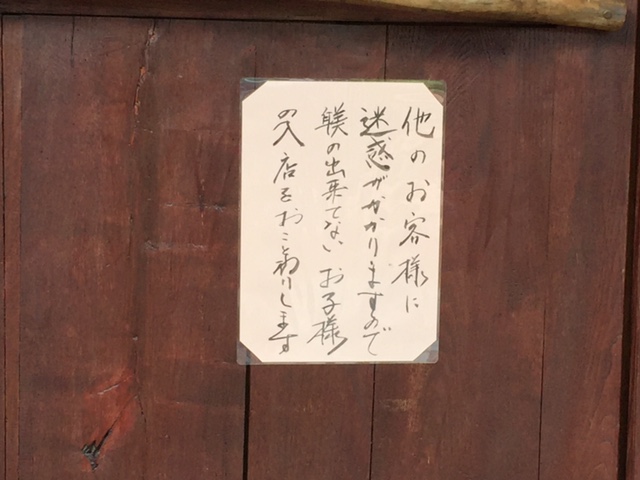 他のお客様に
迷惑がかかりますので
躾の出来てない お子様
の入店をおことわりします